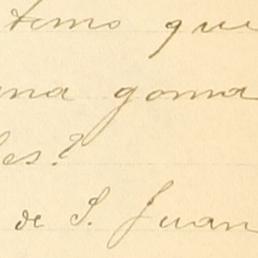 temo que
una goma
les?
de S. Juan